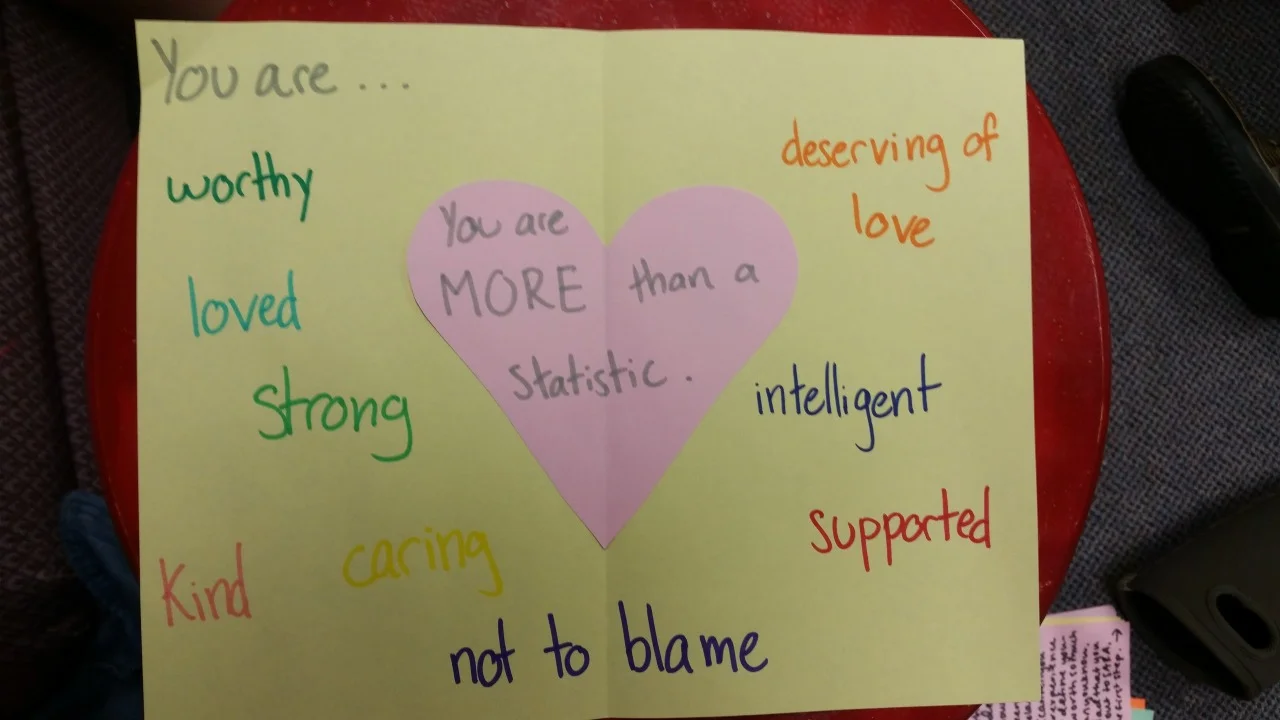 You are ...
worthy
deserving of
love
You are
MORE than a
statistic.
loved
strong
intelligent
supported
caring
Kind
not to blame